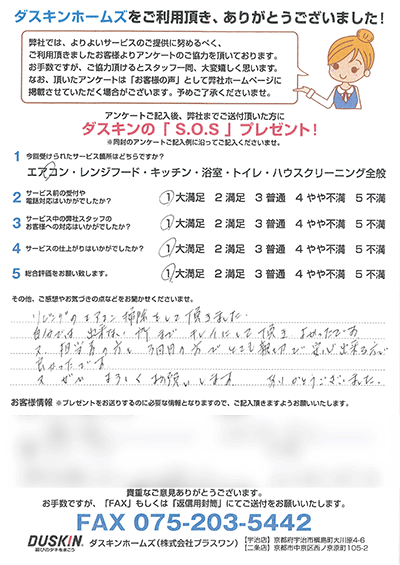 ダスキンホームズをご利用頂き、ありがとうございました！
弊社では、よりよいサービスのご提供に努めるべく、
ご利用頂きましたお客様よりアンケートのご協力を頂いております。
お手数ですが、ご協力頂けるとスタッフ一同、大変嬉しく思います。
なお、頂いたアンケートは「お客様の声」として弊社ホームページに
掲載させていただく場合がございます。予めご了承くださいませ。
アンケートご記入後、弊社までご送付頂いた方に
ダスキンの「 S.O.S 」プレゼント！
※同封のアンケートご記入例に沿ってご記入くださいませ。
1 今回受けられたサービス箇所はどちらですか？
エアコン・レンジフード・キッチン・浴室・トイレ・ハウスクリーニング全般
2 サービス前の受付や
電話対応はいかがでしたか？
1 大満足 2 満足 3 普通 4 やや不満 5 不満
3 サービス中の弊社スタッフの
お客様への対応はいかがでしたか？
1 大満足 2 満足 3 普通 4 やや不満 5 不満
4 サービスの仕上がりはいかがでしたか？
1 大満足 2 満足 3 普通 4 やや不満 5 不満
5 総合評価をお願い致します。
1 大満足 2 満足 3 普通 4 やや不満 5 不満
その他、ご感想やお気づきの点などをお聞かせくださいませ。
リビングのエアコン掃除をして頂きました
自分では出来ない所までキレイにして頂き よかったです
又、担当者の方も3回目の方でとても親切で安心出来る方で
良かったです
又ぜひ よろしくお願いします ありがとうございました。
お客様情報 ※プレゼントをお送りするのに必要な情報となりますので、ご記入頂きますようお願いいたします。
貴重なご意見ありがとうございます。
お手数ですが、「FAX」もしくは「返信用封筒」にてご送付をお願いいたします。
FAX 075-203-5442
DUSKIN
喜びのタネをまこう
ダスキンホームズ（株式会社プラスワン）
【宇治店】京都府宇治市槇島町大川原4-6
【二条店】京都市中京区西ノ京原町105-2